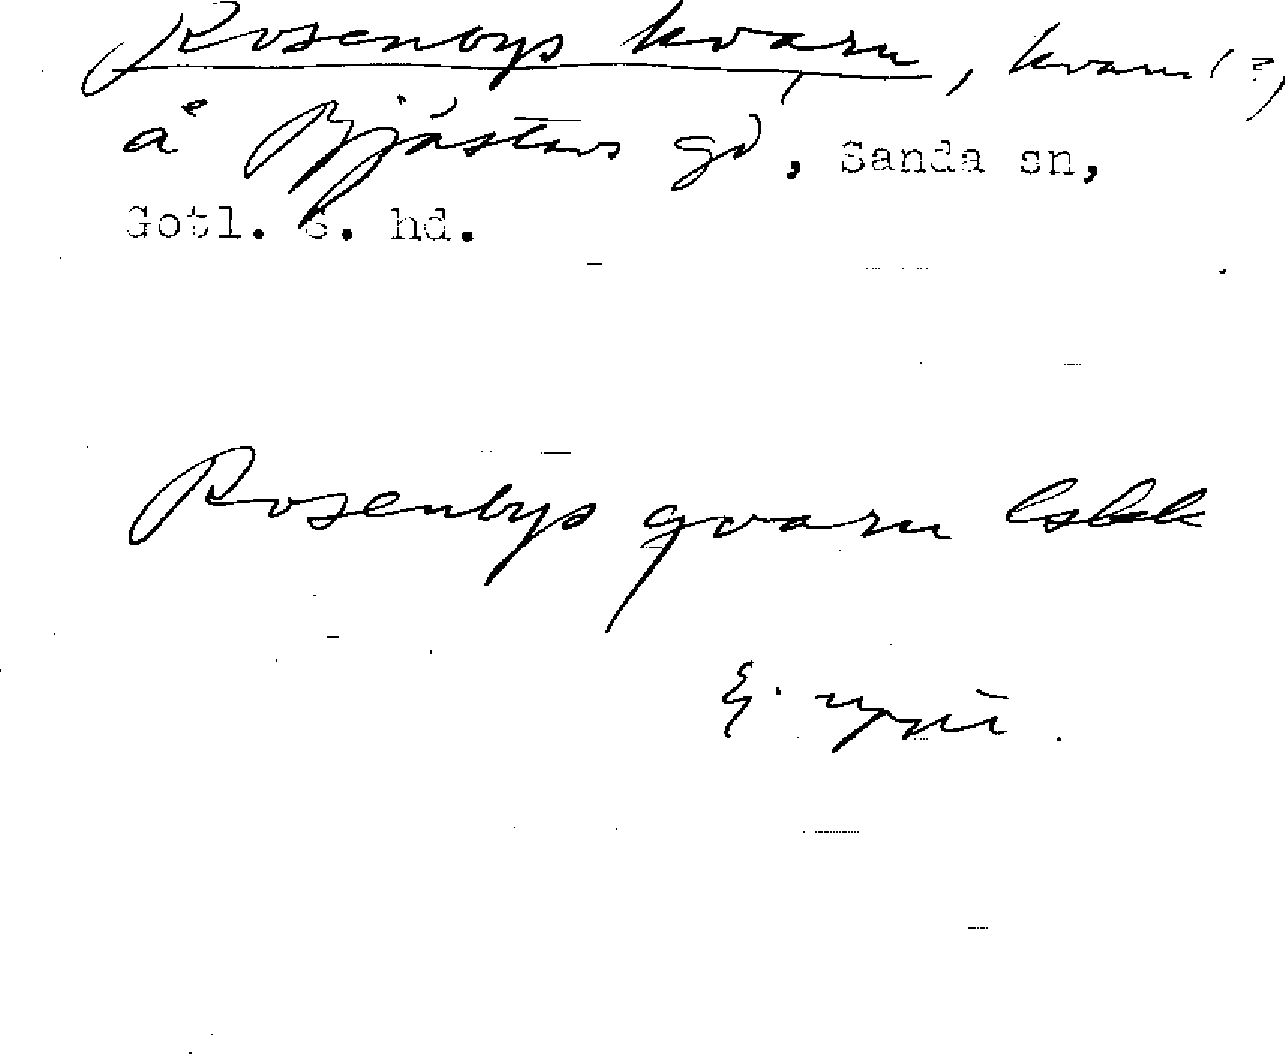 Rosenbys kvarn, kvarn (?)
å Bjästavs gd, Sanda sn,
Gotl. S. hd.
Rosenbys qvarn lskk
Ej uppt.